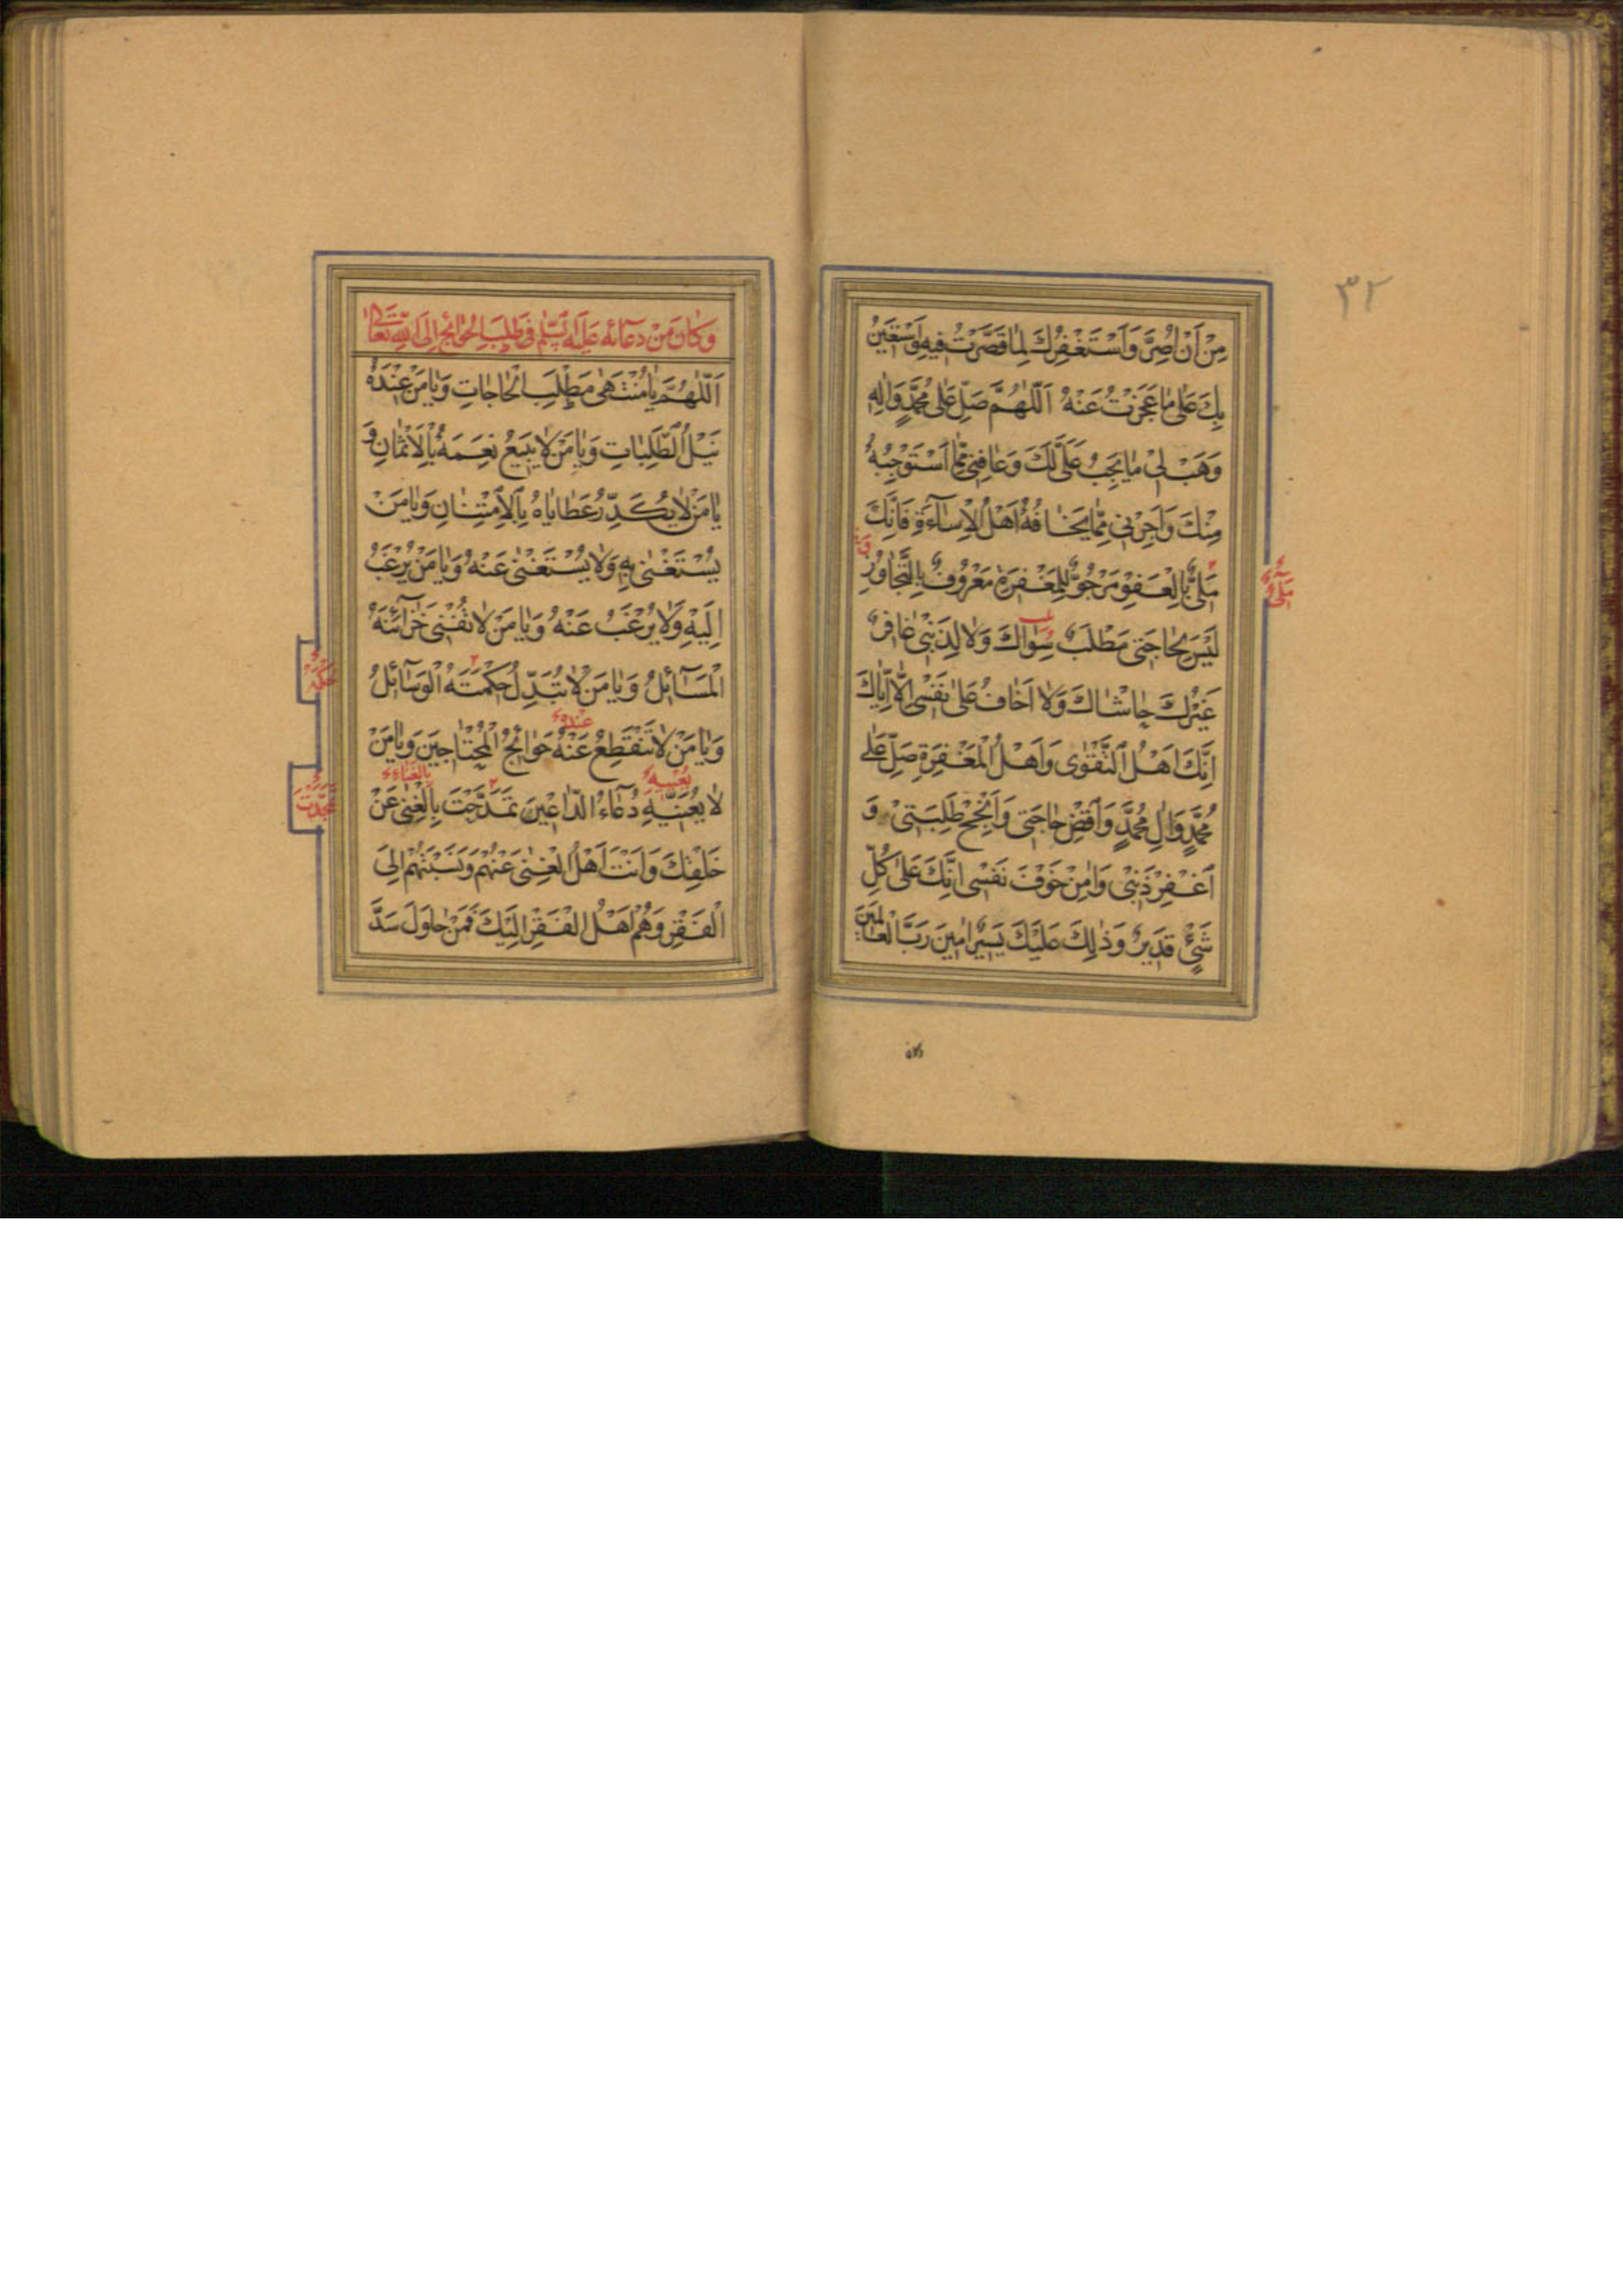 ٣٢
مِنْ اَنْ اُصِرَّ وَاَسْتَغْفِرُكَ لِمٰا قَصَّرْتُ فيهِ وَاَسْتَعينُ
بِكَ عَلىٰ مٰا عَجَزْتُ عَنْهُ اَللّٰهُمَّ صَلِّ عَلىٰ مُحَمَّدٍ وَاٰلِهِ
وَهَبْ لي مٰا يَجِبُ عَلَىَّ لَكَ وَعٰافِني مِمّٰا اَسْتَوْجِبُهُ
مِنْكَ وَاَجِرْني مِمّٰا يَخٰافُهُ اَهْلُ الْاِسٰآءَةِ فَاِنَّكَ
مَلِىٌّ بِالْعَفْوِ مَرْجُوٌّ لِلْمَغْفِرَةِ مَعْرُوفٌ بِالتَّجٰاوُزِ
لَيْسَ لِحٰاجَتي مَطْلَبٌ سِوٰاكَ وَلٰا لِذَنْبي غٰافِرٌ
غَيْرُكَ حٰاشٰاكَ وَلٰا اَخٰافُ عَلىٰ نَفْسي اِلّٰا اِيّٰاكَ
اِنَّكَ اَهْلُ التَّقْوٰى وَاَهْلُ الْمَغْفِرَةِ صَلِّ عَلىٰ
مُحَمَّدٍ وَاٰلِ مُحَمَّدٍ وَاقْضِ حٰاجَتي وَاَنْجِحْ طَلِبَتي وَ
اغْفِرْ ذَنْبي وَاٰمِنْ خَوْفَ نَفْسي اِنَّكَ عَلىٰ كُلِّ
شَىْءٍ قَديرٌ وَذٰلِكَ عَلَيْكَ يَسيرٌ اٰمينَ رَبَّ الْعٰالَمينَ
وَكٰانَ مِنْ دُعٰآئِهِ عَلَيْهِ السَّلٰمُ في طَلَبِ الْحَوٰائِجِ اِلَى اللّٰهِ تَعٰالىٰ
اَللّٰهُمَّ يٰا مُنْتَهىٰ مَطْلَبِ الْحٰاجٰاتِ وَيٰا مَنْ عِنْدَهُ
نَيْلُ الطَّلِبٰاتِ وَيٰا مَنْ لٰا يَبيعُ نِعَمَهُ بِالْاَثْمٰانِ وَ
يٰا مَنْ لٰا يُكَدِّرُ عَطٰايٰاهُ بِالْاِمْتِنٰانِ وَيٰا مَنْ
يُسْتَغْنىٰ بِهِ وَلٰا يُسْتَغْنىٰ عَنْهُ وَيٰا مَنْ يُرْغَبُ
اِلَيْهِ وَلٰا يُرْغَبُ عَنْهُ وَيٰا مَنْ لٰا تُفْني خَزٰآئِنَهُ
الْمَسٰآئِلُ وَيٰا مَنْ لٰا تُبَدِّلُ حِكْمَتَهُ الْوَسٰآئِلُ
عِنْدَهُ
وَيٰا مَنْ لٰا تَنْقَطِعُ عَنْهُ حَوٰائِجُ الْمُحْتٰاجينَ وَيٰا مَنْ
بِالْغَنٰاءِ
لٰا يُعَنّيهِ دُعٰآءُ الدّٰاعينَ تَمَدَّحْتَ بِالْغِنىٰ عَنْ
خَلْقِكَ وَاَنْتَ اَهْلُ الْغِنىٰ عَنْهُمْ وَنَسَبْتَهُمْ اِلَى
الْفَقْرِ وَهُمْ اَهْلُ الْفَقْرِ اِلَيْكَ فَمَنْ حٰاوَلَ سَدَّ